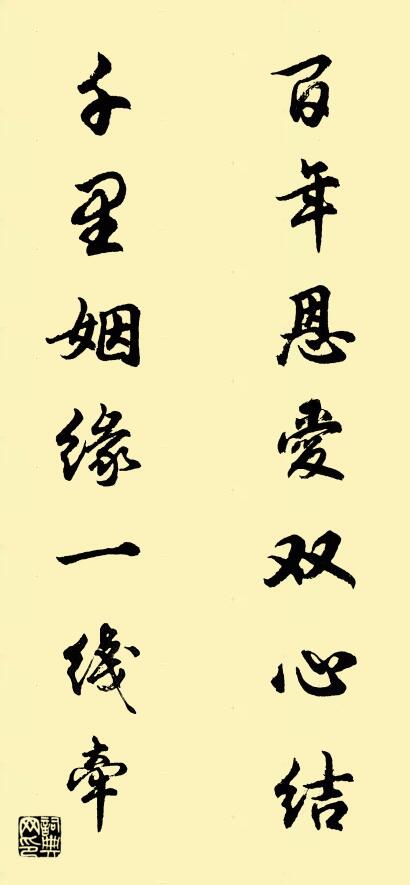 百年恩愛双心结
千里姻缘一线牵
詞典网印